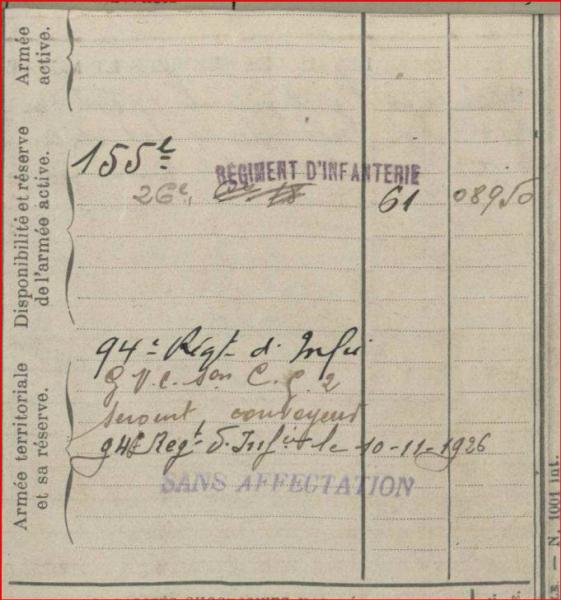 Armée
active.
Disponibilité et réserve
de l'armée active.
155e
RÉGIMENT D'INFANTERIE
26e, 61 08950
Armée territoriale
et sa réserve.
94e Régt d. Infie
G.V.C. son C.C. 2
servant convoyeur
94e Regt d'Infie le 10-11-1926
SANS AFFECTATION
N. 1001 int.